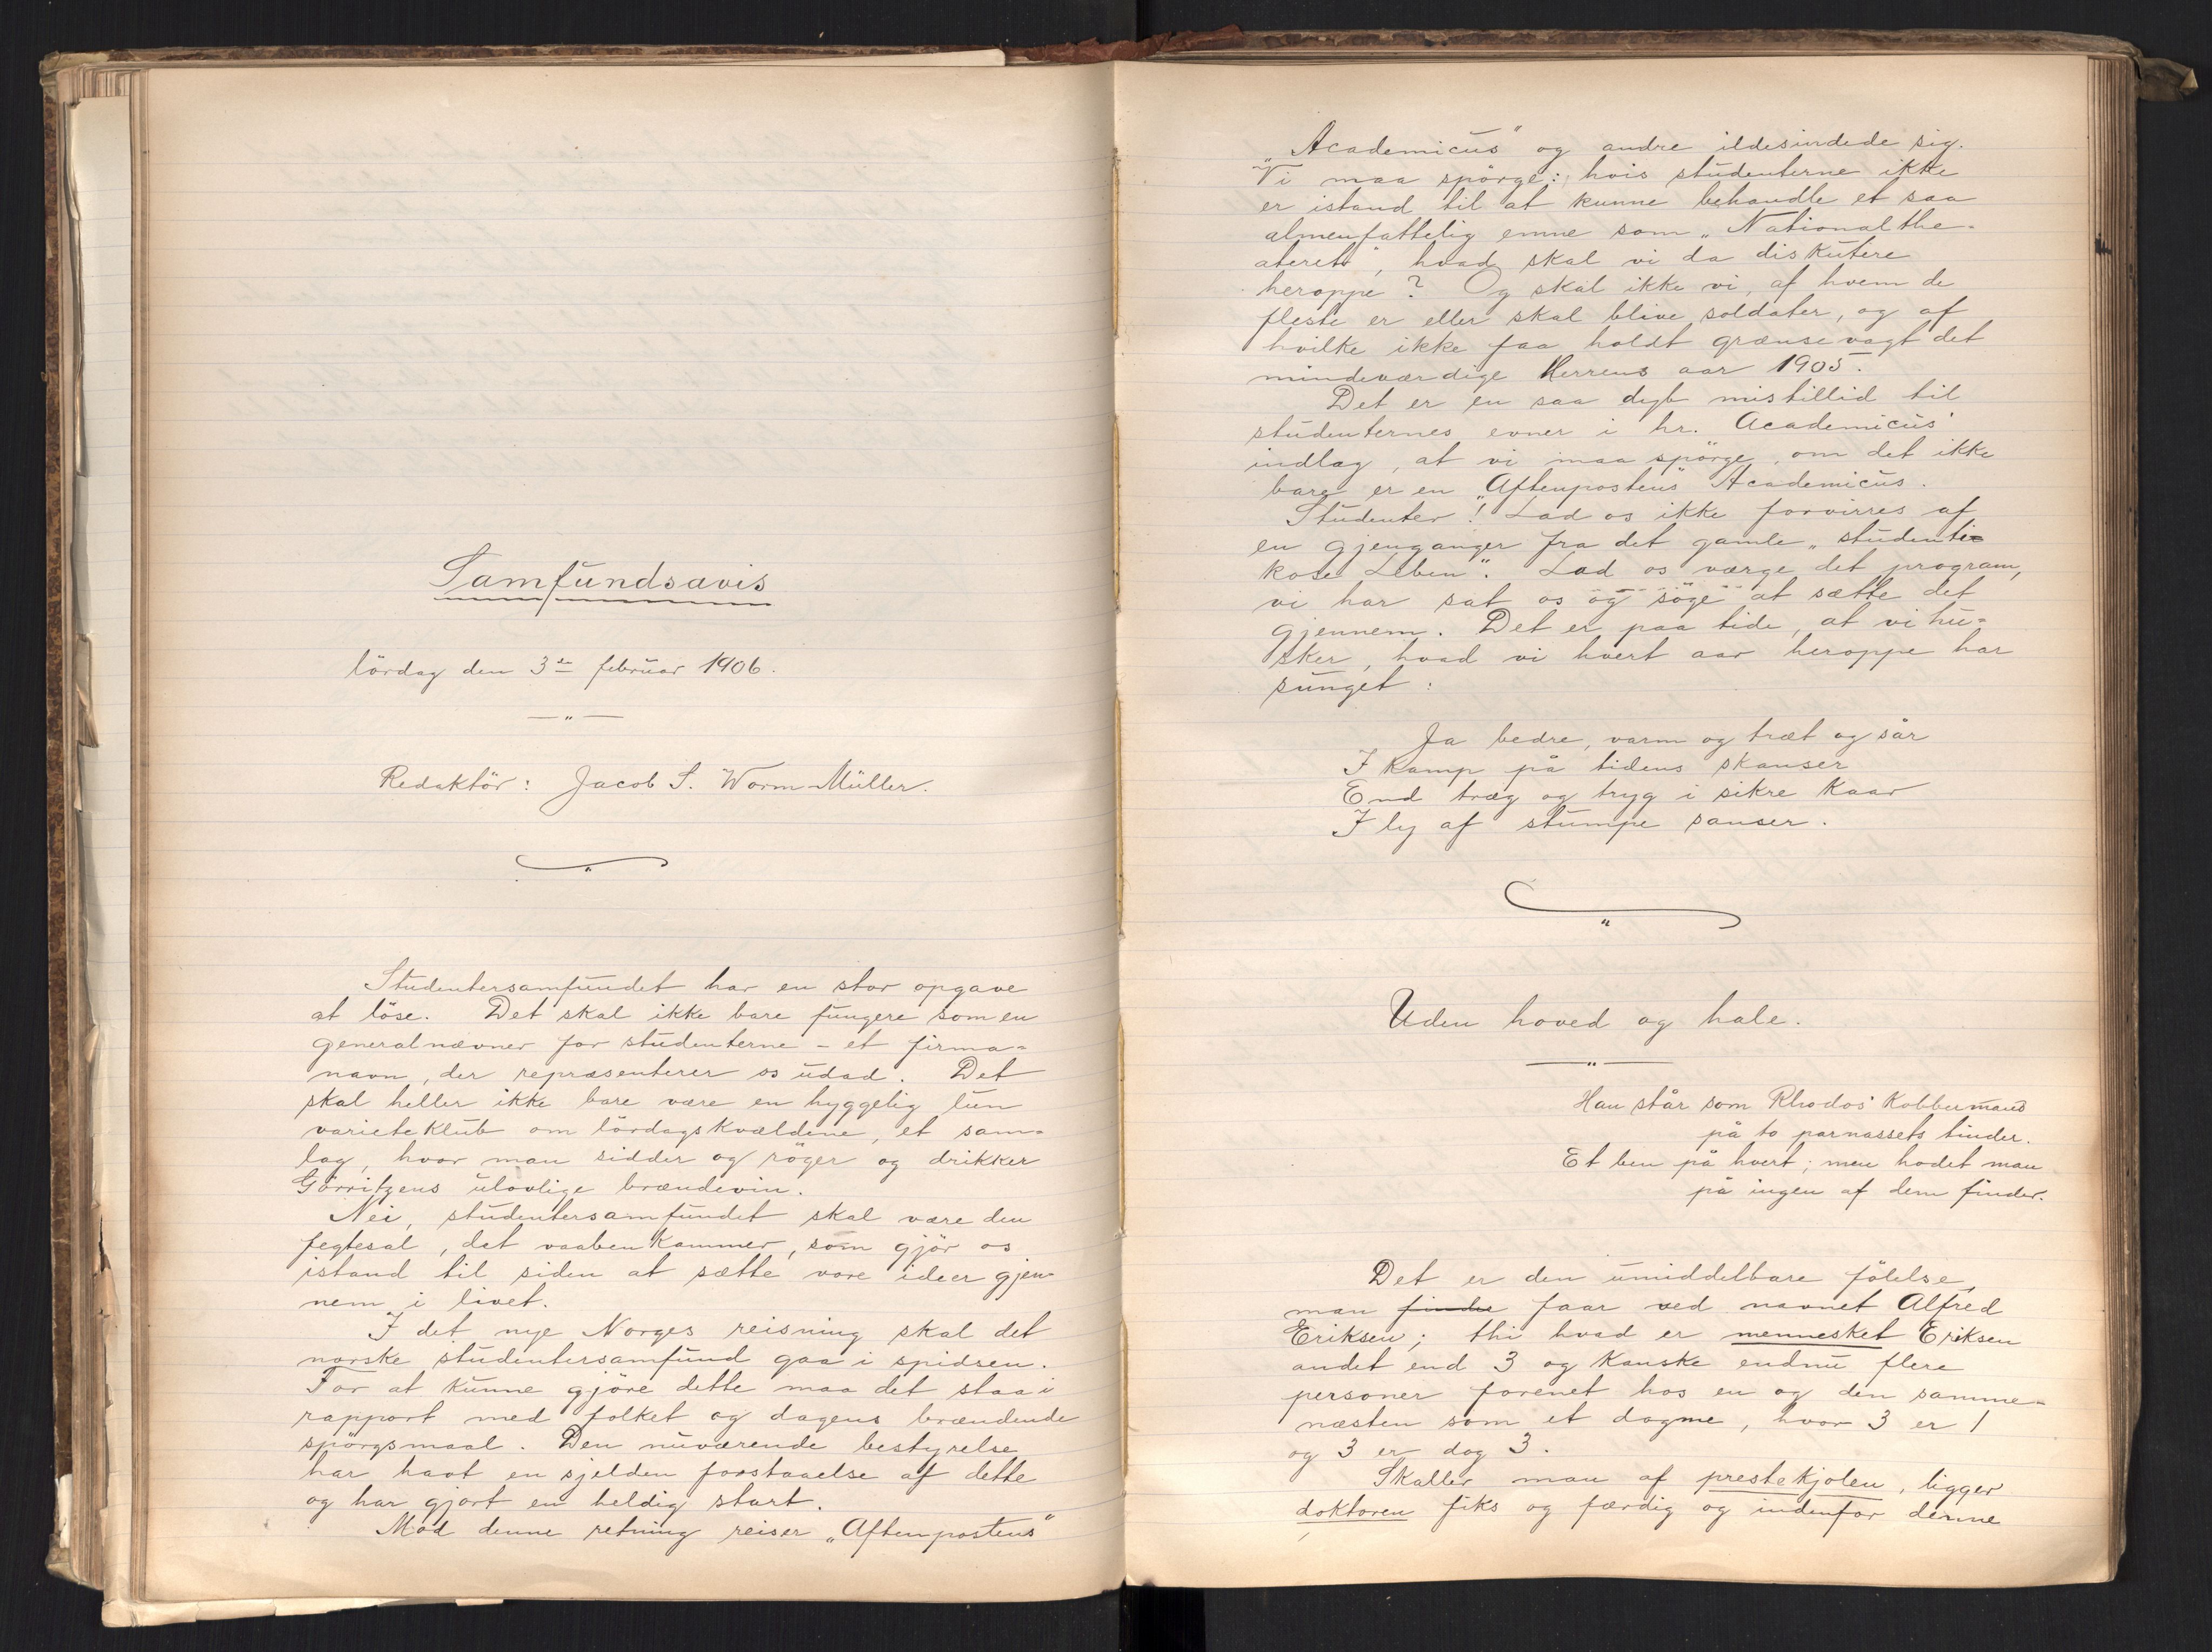 Samfundsavis
lördag den 3de februar 1906.
Redaktör: Jacob S. Worm-Müller.
Studentersamfundet har en stor opgave
at löse. Det skal ikke bare fungere som en
generalnævner for studenterne – et firma=
navn, der repræsenterer os udad. Det
skal heller ikke bare være en hyggelig lun
varieteklub om lördagskvældene, et sam=
lag, hvor man sidder og röger og drikker
Görritzens ulovlige brændevin.
Nei, studentersamfundet skal være den
fegtesal, det vaabenkammer, som gjör os
istand til siden at sætte vore ideer gjen=
nem i livet.
I det nye Norges reisning skal det
norske studentersamfund gaa i spidsen.
For at kunne gjöre dette maa det staa i
rapport med folket og dagens brændende
spörgsmaal. Den nuværende bestyrelse
har havt en sjelden forstaaelse af dette
og har gjort en heldig start.
Mod denne retning reiser „Aftenpostens"
„Academicus" og andre ildesindede sig.
Vi maa spörge: hvis studenterne ikke
er istand til at kunne behandle et saa
almenfattelig emne som „Nationalthe=
ateret", hvad skal vi da diskutere
heroppe? Og skal ikke vi, af hvem de
fleste er eller skal blive soldater, og af
hvilke ikke faa holdt grænsevagt det
mindeværdige Herrens aar 1905.
Det er en saa dyb mistillid til
studenternes evner i hr. Academicus'
indlæg, at vi maa spörge, om det ikke
bare er en „Aftenpostens" Academicus.
Studenter! Lad os ikke forvirres af
en gjenganger fra det gamle „studenti=
kose Leben". Lad os værge det program,
vi har sat os og söge at sætte det
gjennem. Det er paa tide, at vi hu=
sker, hvad vi hvert aar heroppe har
sunget:
Ja bedre, varm og træt og sår
I kamp på tidens skanser
End træg og tryg i sikre kaar
I ly af stumpe sanser.
Uden hoved og hale.
Han står som Rhodos' kobbermand
på to parnassets tinder.
Et ben på hvert; men hodet man
på ingen af dem finder.
Det er den umiddelbare fölelse,
man finder faar ved navnet Alfred
Eriksen; thi hvad er mennesket Eriksen
andet end 3 og kanske endnu flere
personer forenet hos en og den samme=
næsten som et dogme, hvor 3 er 1
og 3 er dog 3.
Skaller man af prestekjolen, ligger
doktoren fiks og færdig og indenfor denne